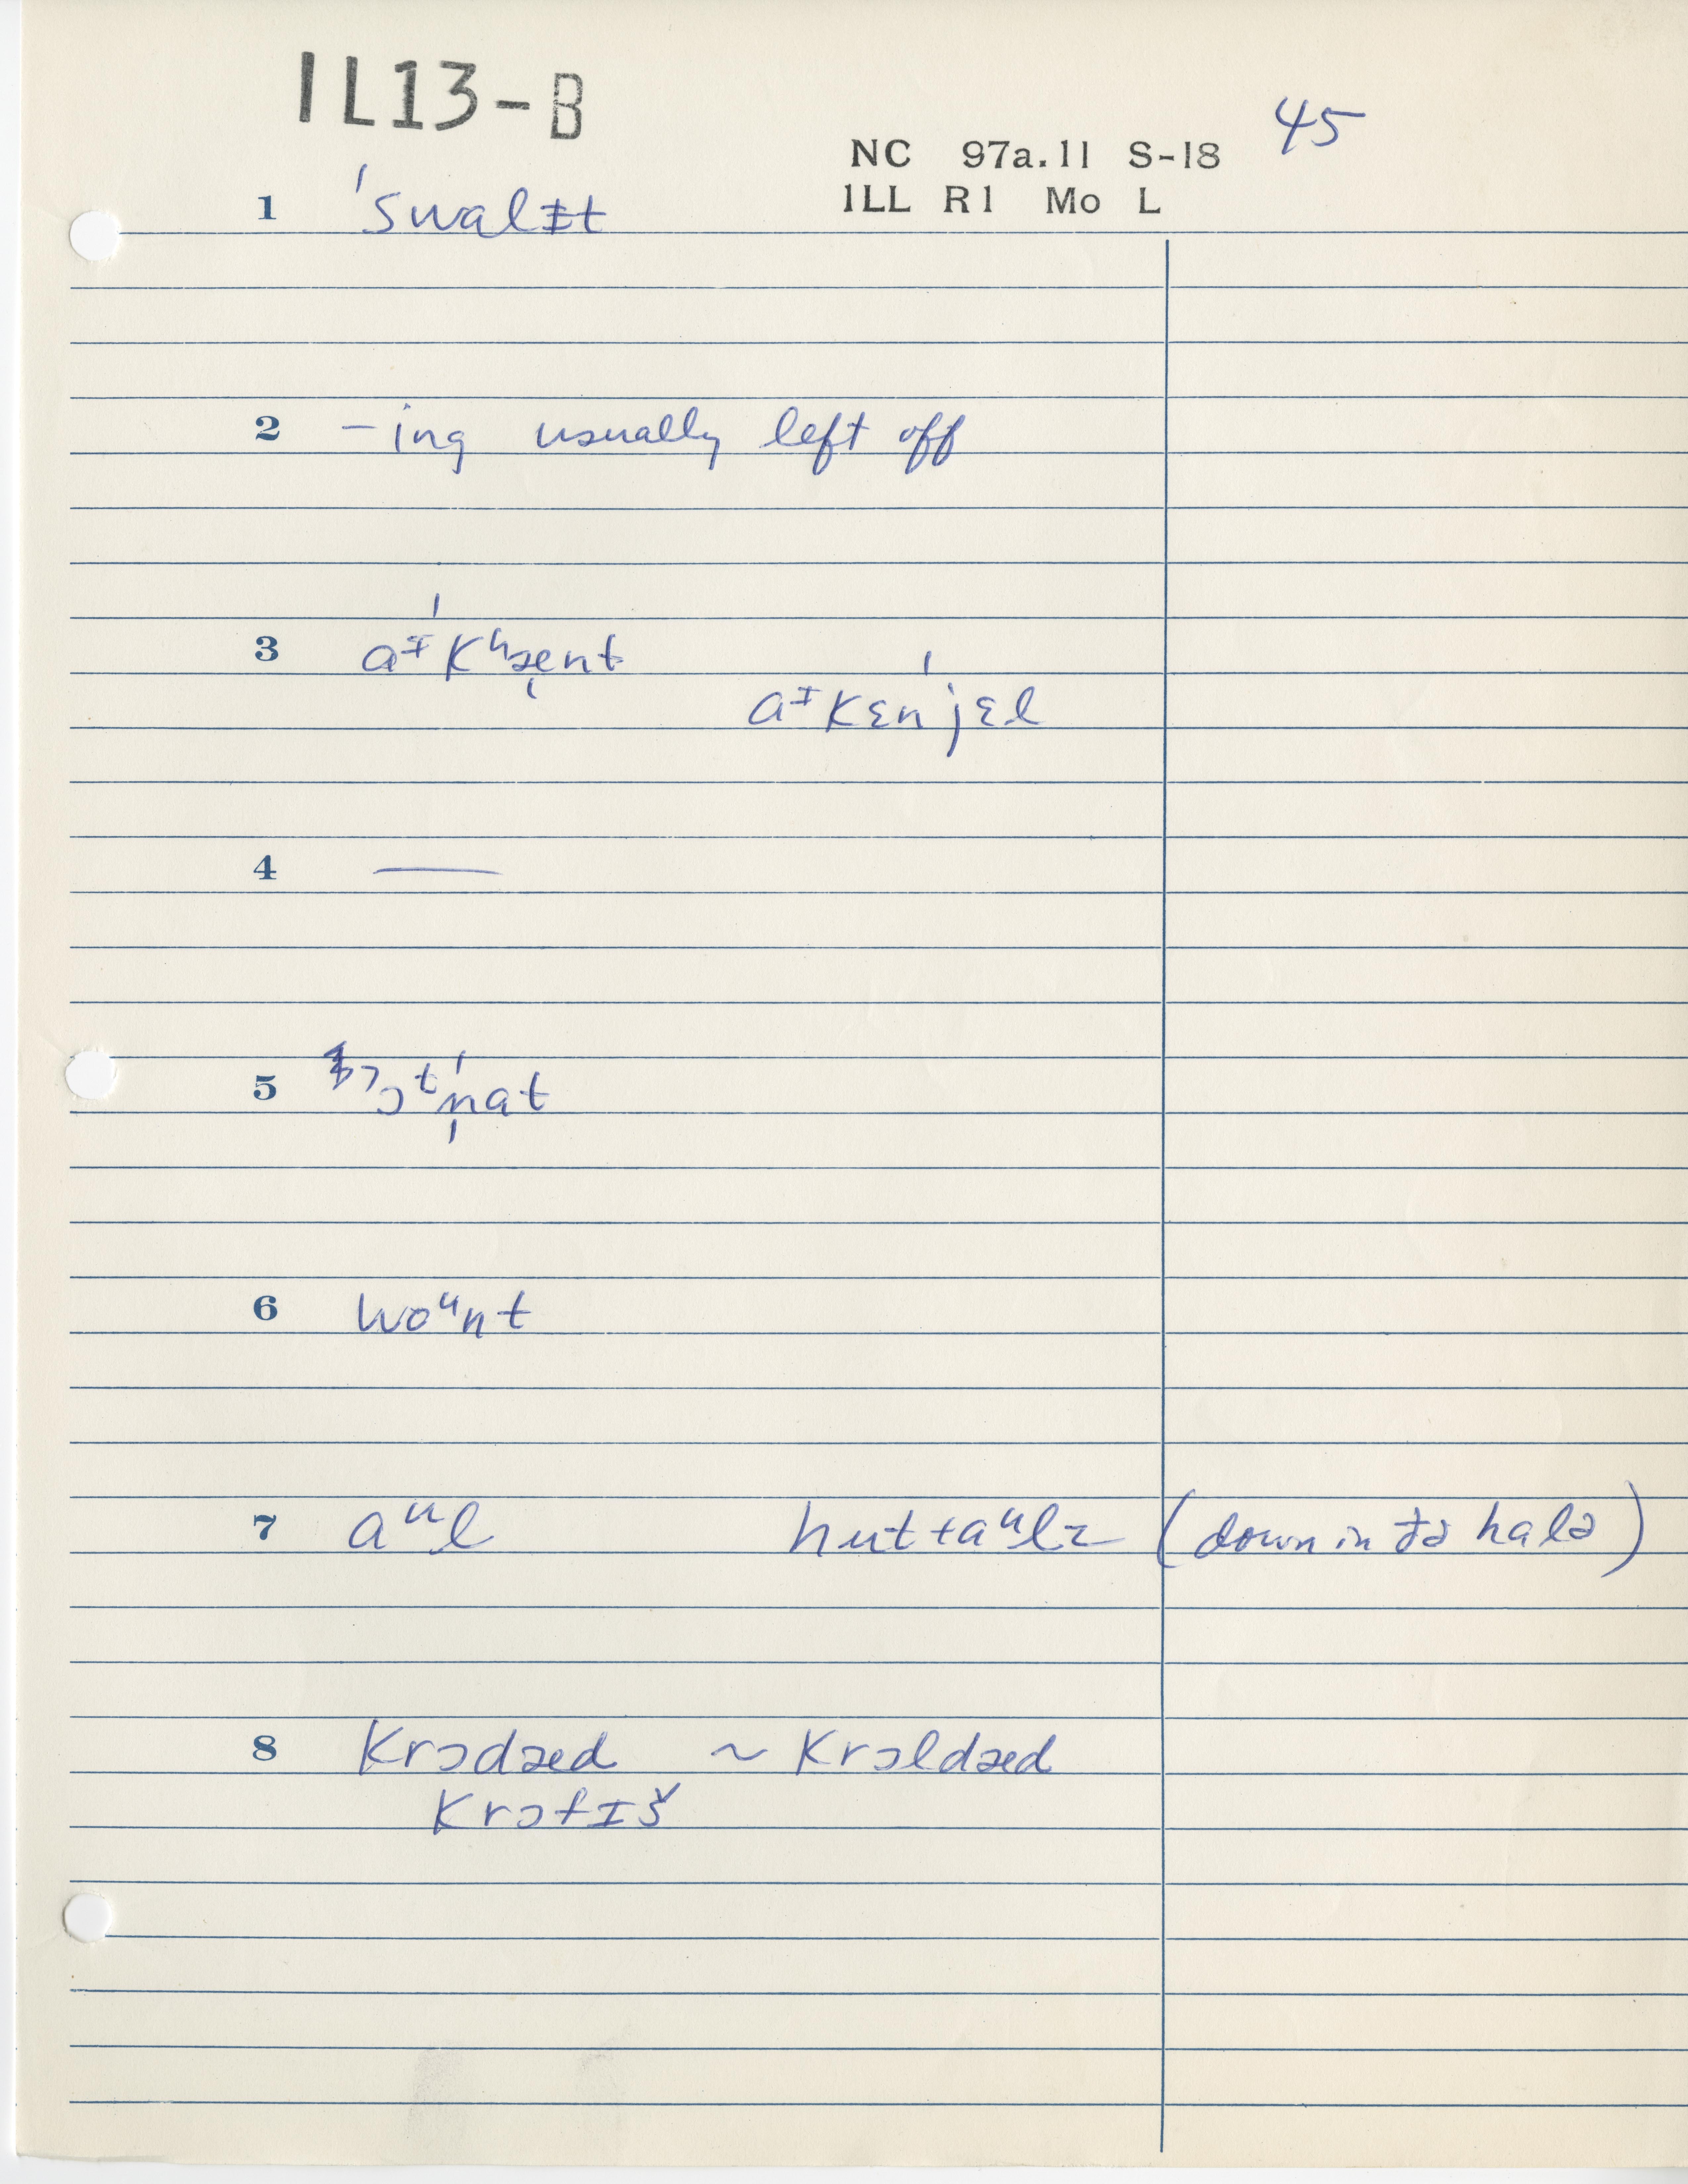 1L13-B
45
NC 97a.11 S-18
1LL R1 Mo L
1 'swalɪt
2 -ing usually left off
3 aᵻ'kʰæ̩nt
aᵻkɛn'jɛl
4 —
5 ɔᵗ'n̩at
6 woᵘnt
7 aᵘl huttaᵘlz (down in ðə halə)
8 krɔdæd ~ krɔldæd
krɔfɪš